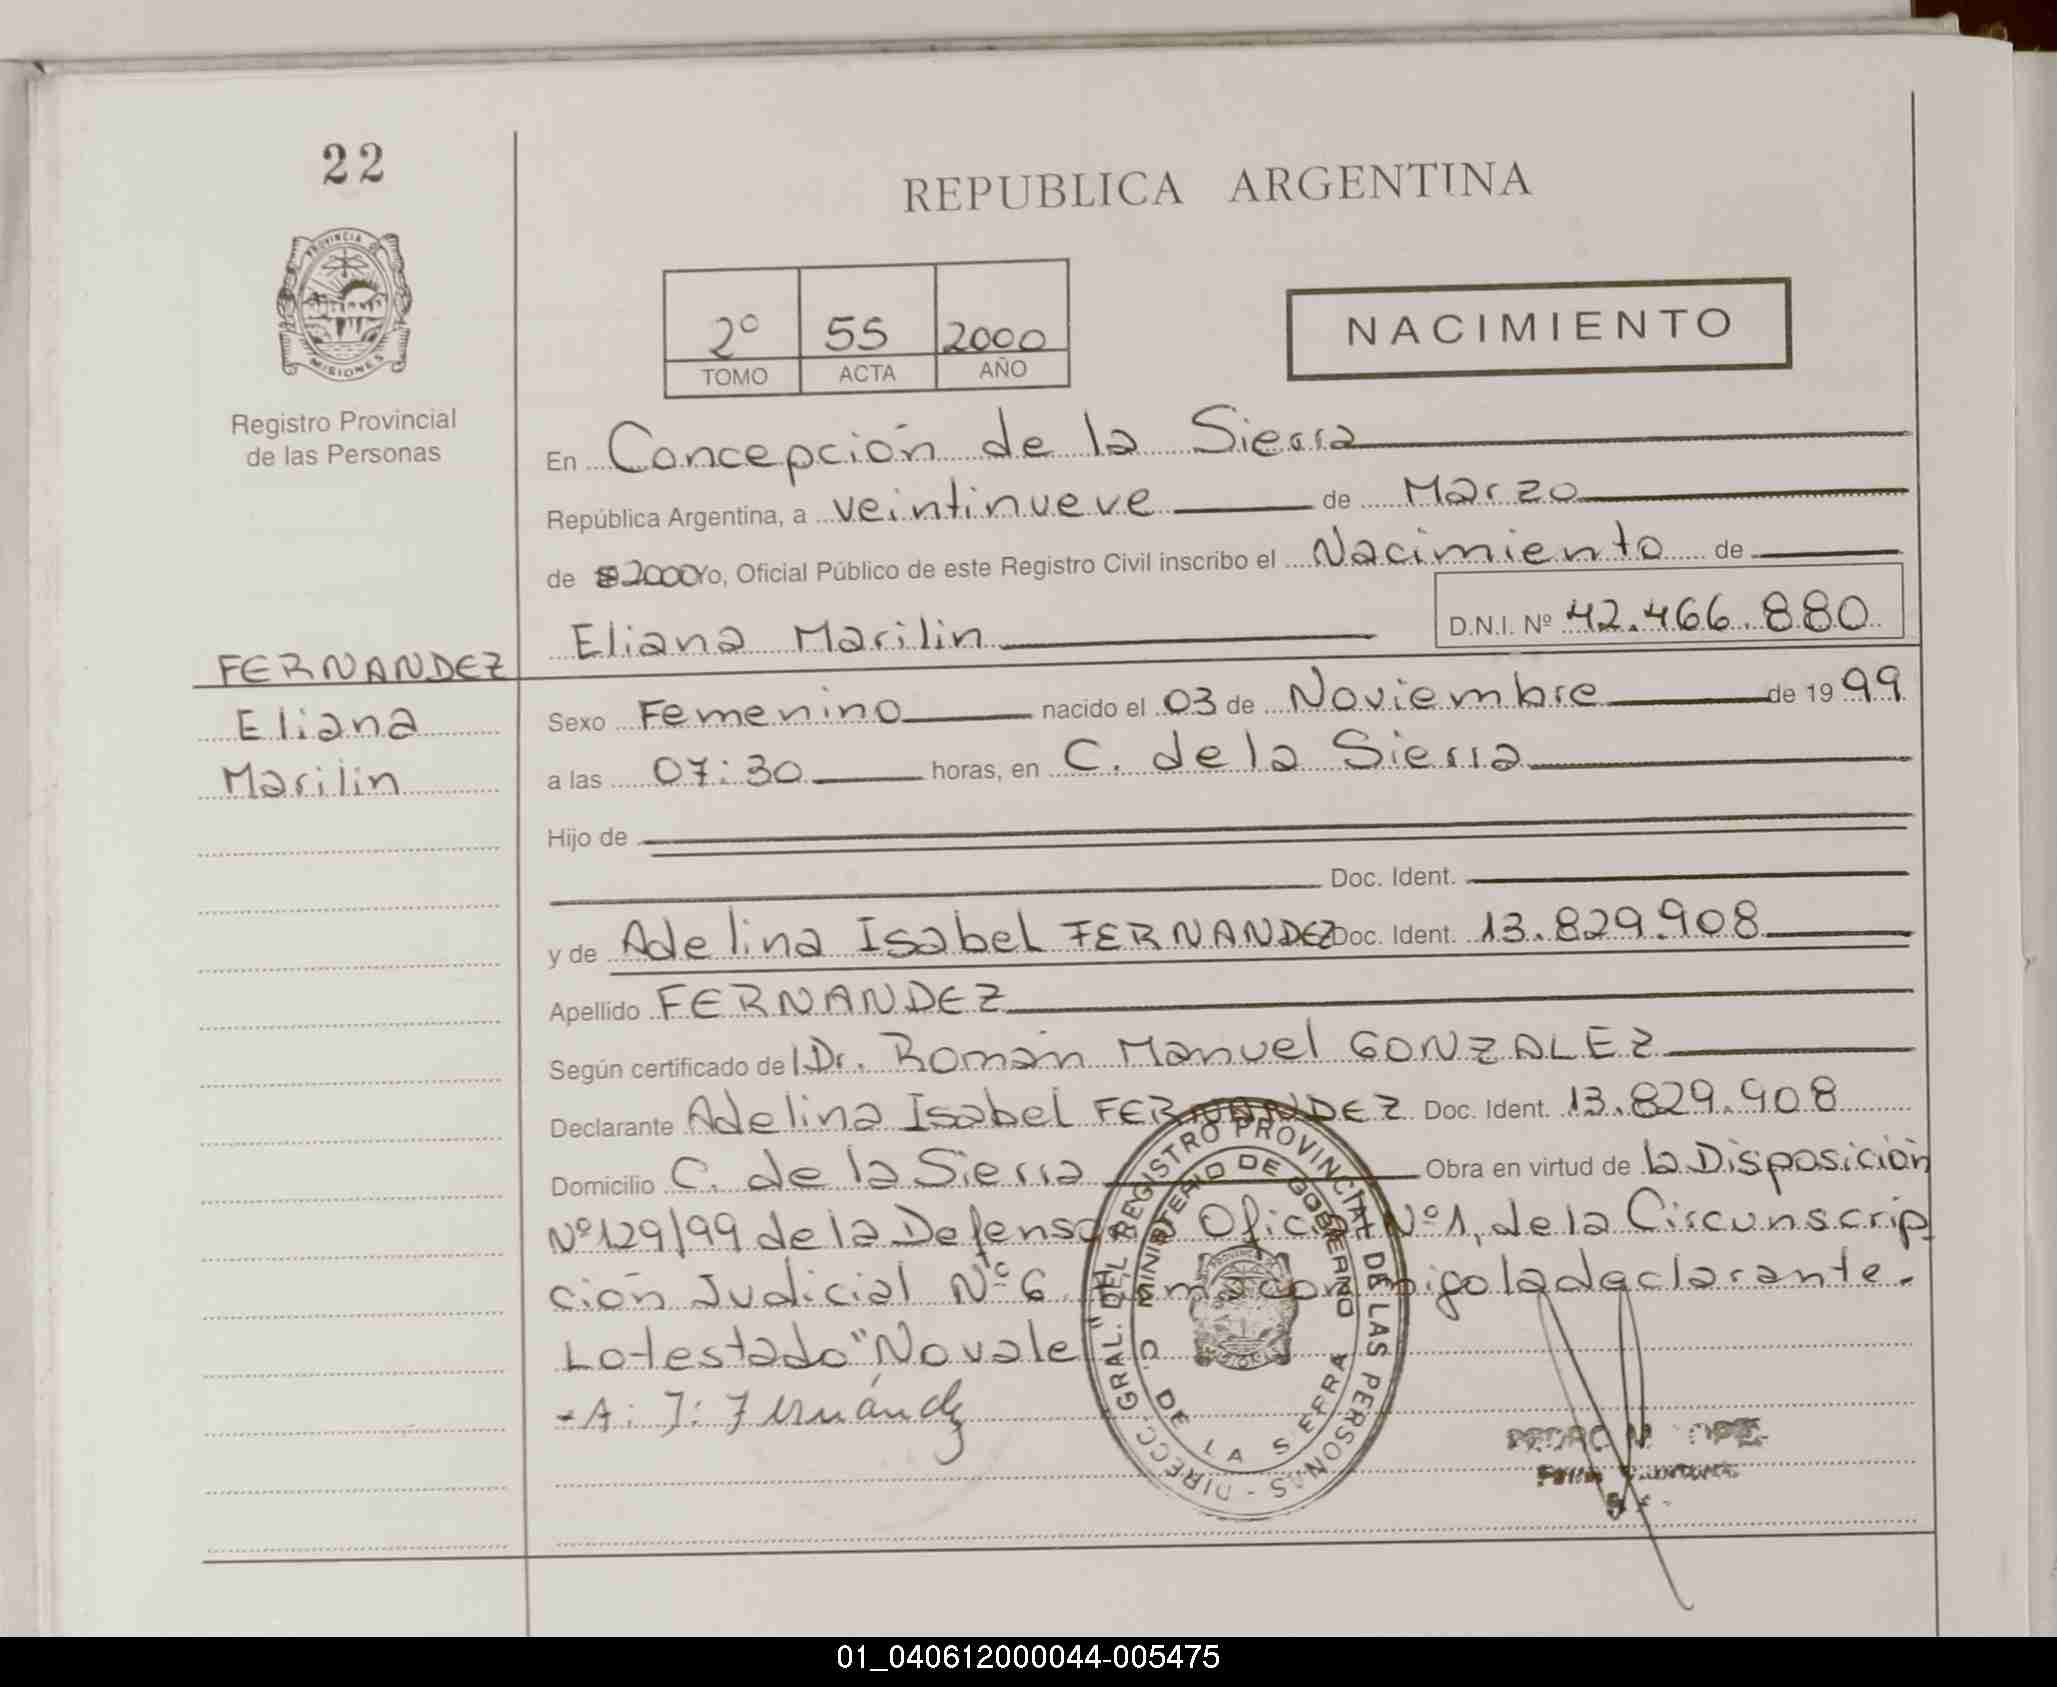 22
REPUBLICA ARGENTINA
PROVINCIA DE
MISIONES
Registro Provincial
de las Personas
2º 55 2000
TOMO ACTA AÑO
NACIMIENTO
En Concepción de la Sierra
República Argentina, a veintinueve de Marzo
de 2000 Yo, Oficial Público de este Registro Civil inscribo el Nacimiento de
Eliana Marilin D.N.I. Nº 42.466.880
FERNANDEZ
Eliana
Marilin
Sexo Femenino nacido el 03 de Noviembre de 1999
a las 07:30 horas, en C. de la Sierra
Hijo de
Doc. Ident.
y de Adelina Isabel FERNANDEZ Doc. Ident. 13.829.908
Apellido FERNANDEZ
Según certificado de l Dr. Román Manuel GONZALEZ
Declarante Adelina Isabel FERNANDEZ Doc. Ident. 13.829.908
Domicilio C. de la Sierra Obra en virtud de la Disposición
Nº 129/99 de la Defensoría Oficial Nº 1, de la Circunscrip-
ción Judicial Nº 6. Firma conmigo la declarante.
Lo testado "No vale"
A. I. Fernández
DIRECC. GRAL. DEL REGISTRO PROVINCIAL DE LAS PERSONAS
MINISTERIO DE GOBIERNO
C. DE LA SIERRA
01_040612000044-005475